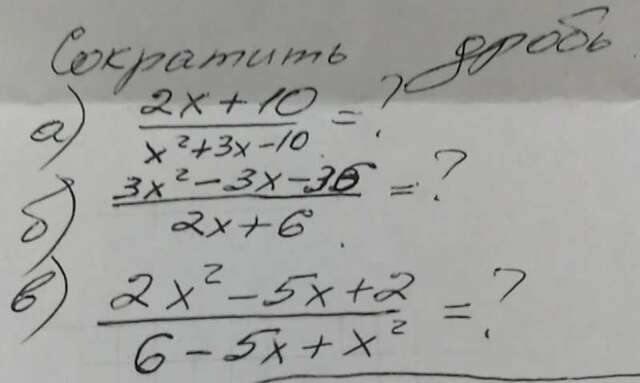 Сократить дробь.
а) (2x+10)/(x²+3x-10) = ?
б) (3x²-3x-36)/(2x+6) = ?
в) (2x²-5x+2)/(6-5x+x²) = ?